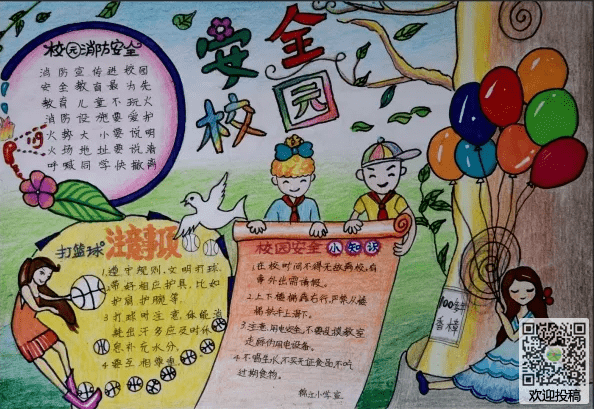 安全校园
校园消防安全
消防宣传进校园
安全教育最为先
教育儿童不玩火
消防设施要爱护
火势大小要说明
火场地址要说清
呼喊同学快撤离
119
打篮球注意事项
1.遵守规则,文明打球.
2.带好相应护具,比如
护肩护腕等.
3.打球时注意,体能消
耗出汗多应及时休
息补充水分.
4.要互相尊重
校园安全小知识
1.在校时间不得无故离校,有
事外出需请假.
2.上下楼梯靠右行,严禁从楼
梯扶手上滑下.
3.注意用电安全,不要乱摸教室
走廊的用电设备.
4.不喝生水,不买无证食品不吃
过期食物.
香樟
欢迎投稿